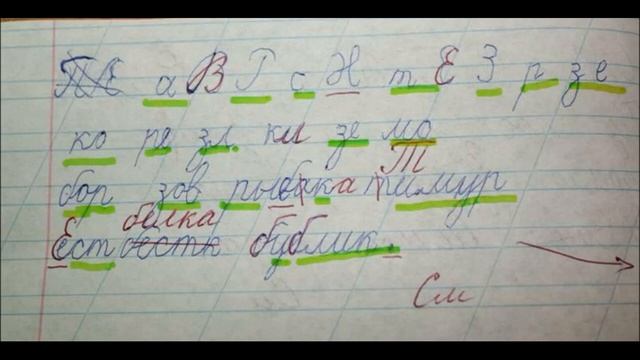 а В Г с Н т Е З р зе
ко ре зл ки зе мо
бор зов рыбка Тимур
белка
Ест бублик.
См